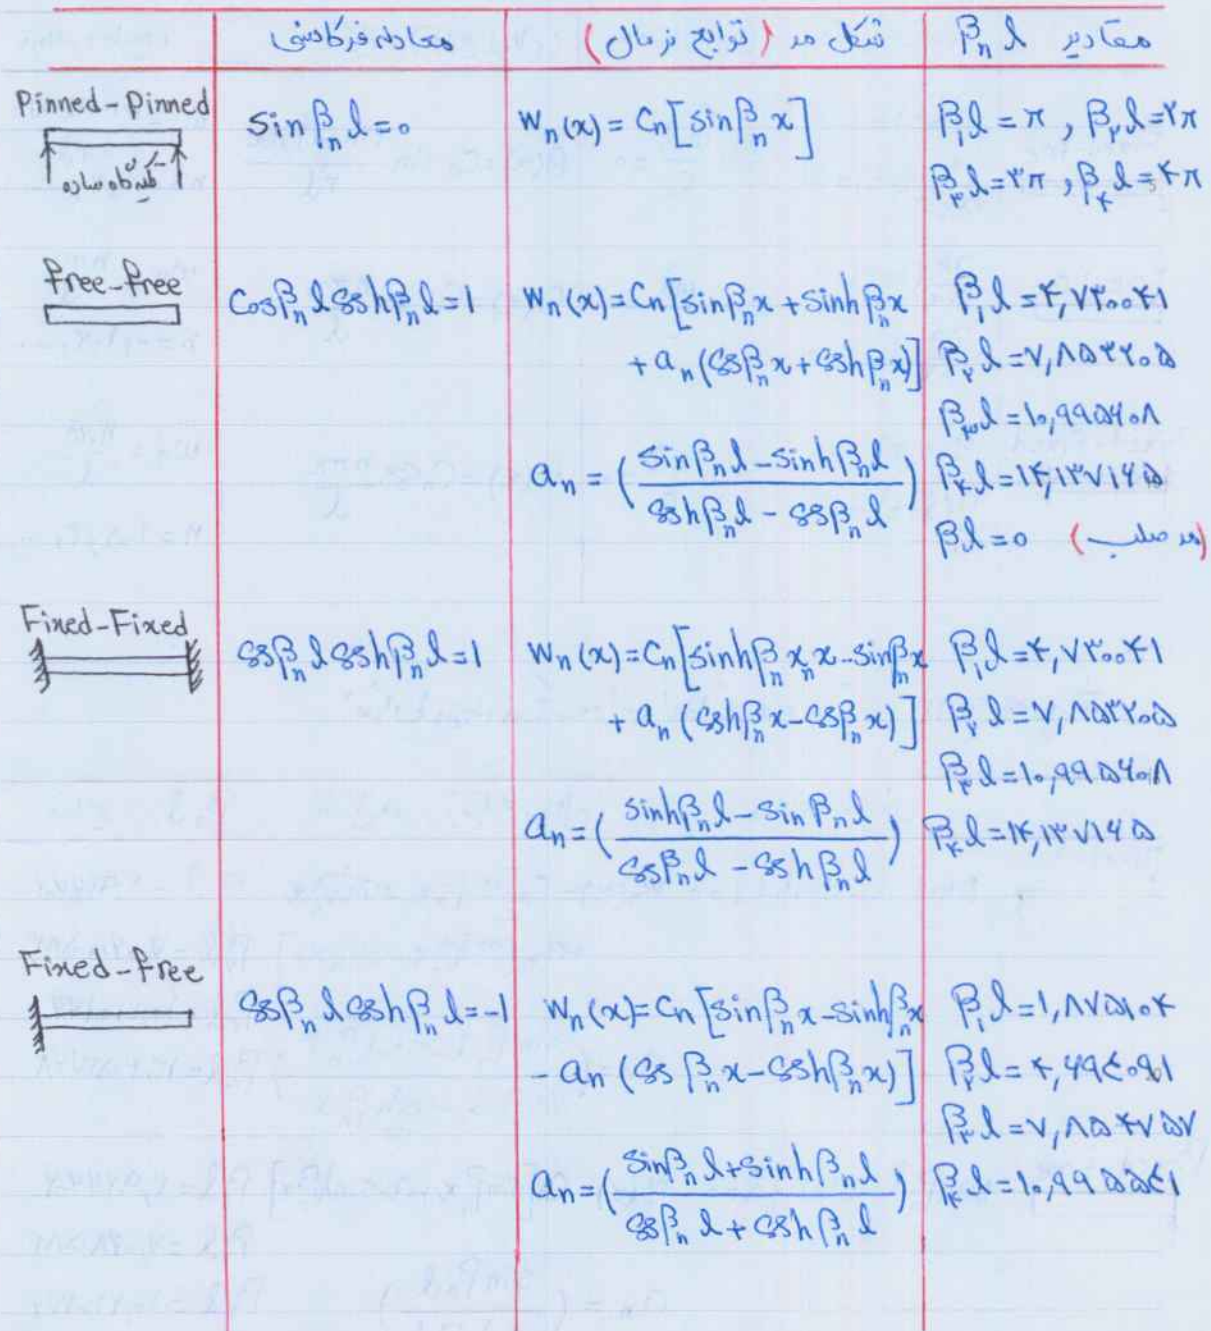 معادله فرکانسی	شکل مد (توابع نرمال)	مقادیر βₙl
Pinned-Pinned
تکیه گاه ساده
sinβₙl=0
Wₙ(x) = Cₙ[sinβₙx]
β₁l = π , β₂l=۲π
β₃l=۳π , β₄l=۴π
free-free
Cosβₙl coshβₙl=1
Wₙ(x)=Cₙ[sinβₙx + sinhβₙx
+ aₙ(cosβₙx+coshβₙx)]
aₙ = (sinβₙl - sinhβₙl / coshβₙl - cosβₙl)
β₁l = ۴,۷۳۰۰۴۱
β₂l = ۷,۸۵۳۲۰۵
β₃l = ۱۰,۹۹۵۶۰۸
β₄l = ۱۴,۱۳۷۱۶۵
βl = 0 (مد صلب)
Fixed-Fixed
cosβₙl coshβₙl=1
Wₙ(x)=Cₙ[sinhβₙxₙx-sinβₙx
+ aₙ (coshβₙx-cosβₙx)]
aₙ=(sinhβₙl - sinβₙl / cosβₙl - coshβₙl)
β₁l=۴,۷۳۰۰۴۱
β₂l = ۷,۸۵۳۲۰۵
β₃l = ۱۰,۹۹۵۶۰۸
β₄l = ۱۴,۱۳۷۱۶۵
Fixed-free
cosβₙl coshβₙl=-1
Wₙ(x)=Cₙ[sinβₙx-sinhβₙx
- aₙ (cosβₙx-coshβₙx)]
aₙ=(sinβₙl+sinhβₙl / cosβₙl+coshβₙl)
β₁l = ۱,۸۷۵۱۰۴
β₂l = ۴,۶۹۴۰۹۱
β₃l = ۷,۸۵۴۷۵۷
β₄l = ۱۰,۹۹۵۵۴۱